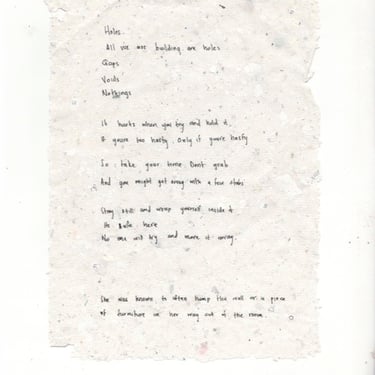 Holes.
All we are building are holes
Gaps
Voids
Nothings
It hurts when you try and hold it.
If you're too hasty. Only if you're hasty
So: take your time. Dont grab
And you might get away with a few stabs
Stay still and wrap yourself inside it
He safe here
No one will try and move it away.
She was known to often bump the wall or a piece
of furniture on her way out of the room.